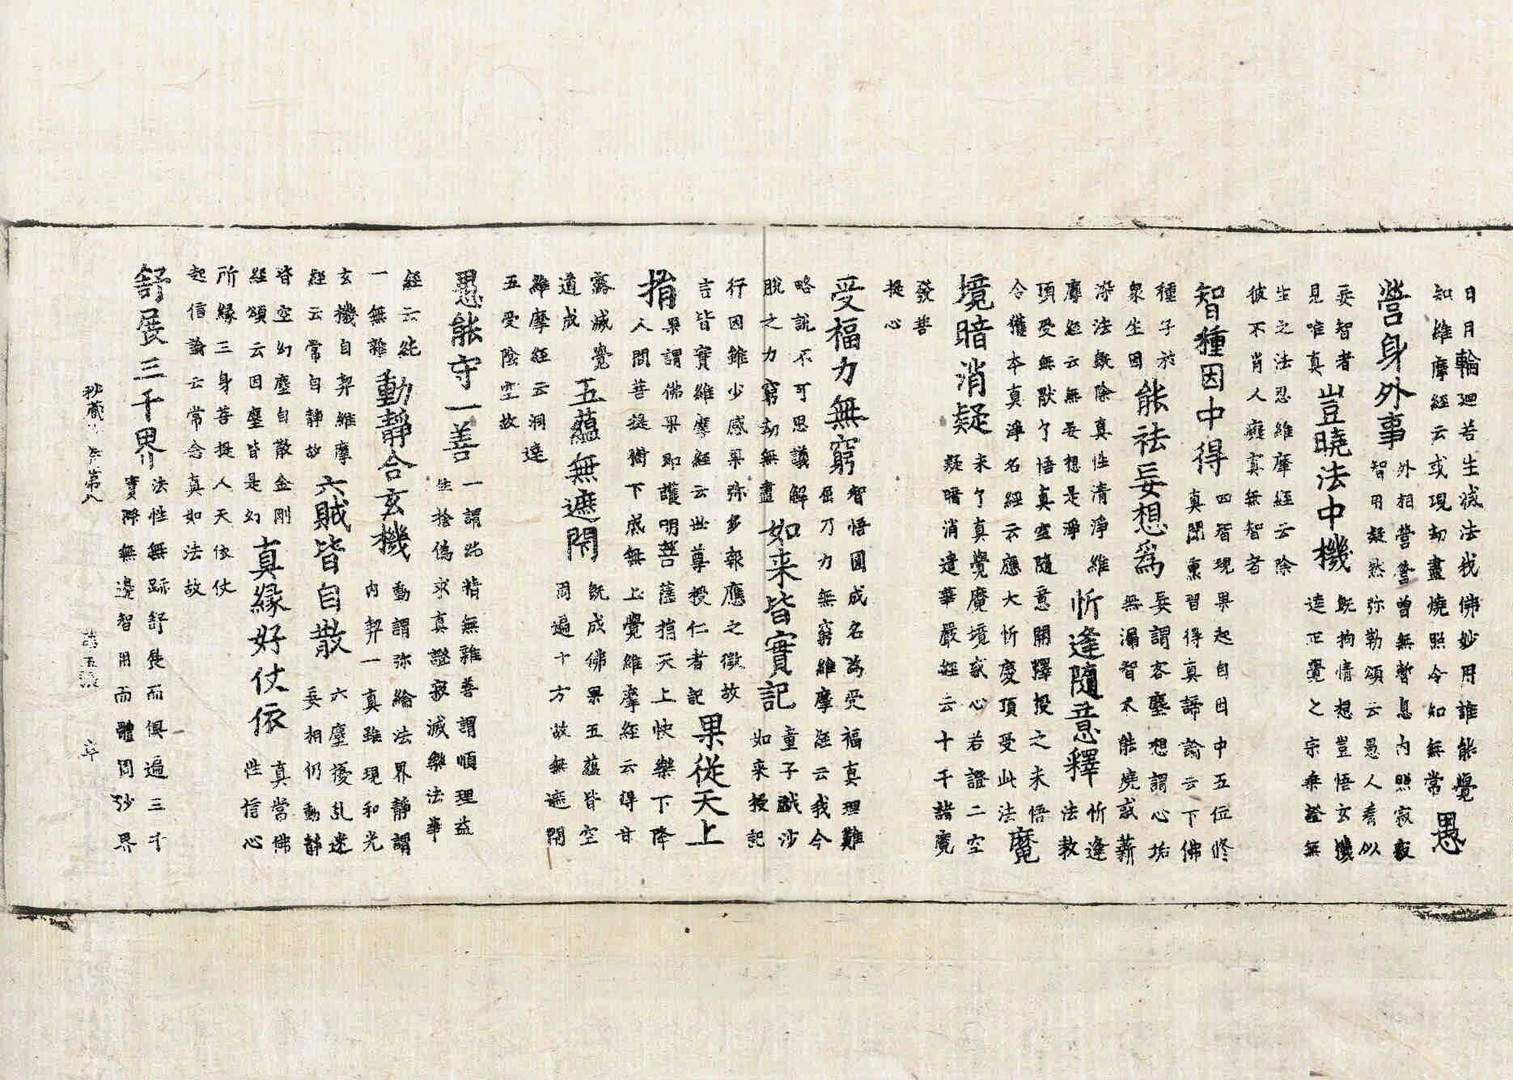 日月輪迴若生滅法我佛妙用誰能覺
知維摩經云或現劫盡燒照令知無常
愚
營身外事
外相營營曾無暫息內照寂寂
智用凝然弥勒頌云愚人看似
妄智者
見唯真
豈曉法中機
既拘情想豈悟玄機
達正覺之宗乘證無
生之法忍維摩經云除
彼不肖人癡冥無智者
智種因中得
四智現果起自因中五位修
真聞熏習得真諦論云下佛
種子於
衆生因
能祛妄想爲
妄謂客塵想謂心垢
無漏智不能燒惑薪
染法既除真性清淨維
摩經云無妄想是淨
忻逢隨意釋
忻逢
法教
頂受無猒了悟真空隨意開釋授之未悟
令催本真淨名經云應大忻慶頂受此法
魔
境暗消疑
未了真覺魔境惑心若證二空
疑暗消遣華嚴經云十千諸魔
發菩
提心
受福力無窮
智悟圓成名為受福真理難
屈乃力無窮維摩經云我今
略說不可思議解
脫之力窮劫無盡
如来皆實記
童子戱沙
如來授記
行因雖少感果弥多報應之徵故
言皆實維摩經云世尊授仁者記
果從天上
指
果謂佛果即護明菩薩指天上快樂下降
人間菩提猶下成無上覺維摩經云得甘
露滅覺
道成
五蘊無遮閇
既成佛果五蘊皆空
周遍十方故無遮閇
維摩經云洞達
五受陰空故
愚能守一善
一謂始精無雜善謂順理益
生捨偽求真證寂滅樂法華
經云純
一無雜
動靜合玄機
動謂弥綸法界靜謂
內契一真雖現和光
玄機自契維摩
經云常自靜故
六賊皆自散
六塵擾乱迷
妄相仍動静
皆空幻塵自散金剛
經頌云因塵皆是幻
真緣好仗依
真當佛
性信心
所緣三身菩提人天依仗
起信論云常念真如法故
舒展三千界
法性無跡舒長而俱遍三千
實際無邊智用而體周沙界
秘藏 第八